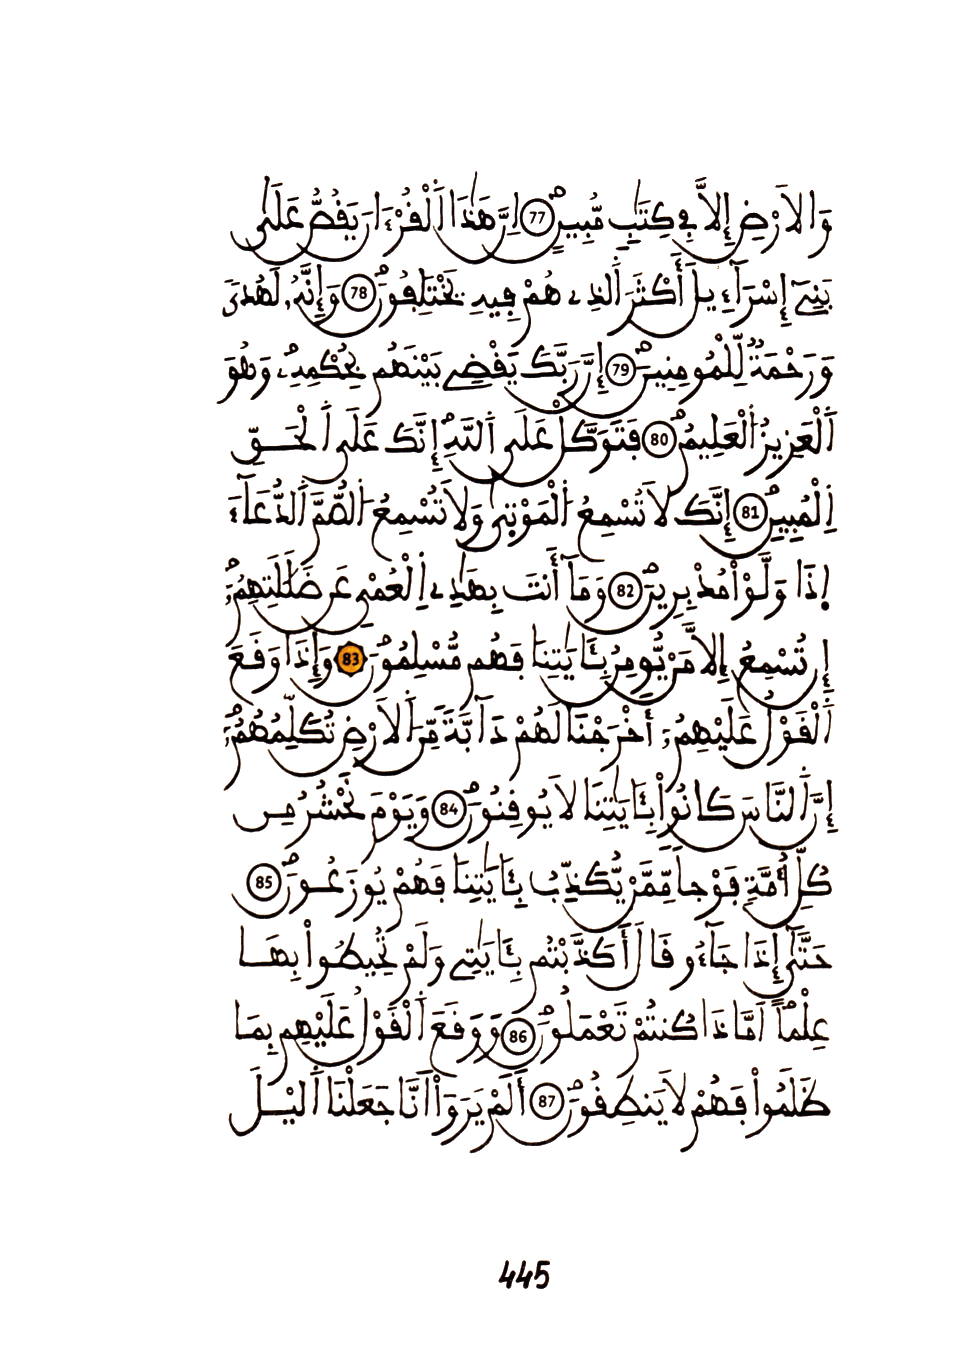 وَالَارْضِ إِلَّا فِے كِتَٰبٖ مُّبِينٍۖ 77 اِنَّ هَٰذَا اَ۬لْقُرْءَانَ يَقُصُّ عَلَيٰ
بَنِےٓ إِسْرَآءِيلَ أَكْثَرَ اَ۬لذِے هُمْ فِيهِ يَخْتَلِفُونَۖ 78 وَإِنَّهُۥ لَهُديٗ
وَرَحْمَةٞ لِّلْمُومِنِينَۖ 79 إِنَّ رَبَّكَ يَقْضِے بَيْنَهُم بِحُكْمِهِۦۖ وَهُوَ
اَ۬لْعَزِيزُ اُ۬لْعَلِيمُۖ 80 فَتَوَكَّلْ عَلَي اَ۬للَّهِۖ إِنَّكَ عَلَي اَ۬لْحَقِّ
اِ۬لْمُبِينِۖ 81 إِنَّكَ لَا تُسْمِعُ اُ۬لْمَوْتٰ۪ي وَلَا تُسْمِعُ اُ۬لصُّمَّ اَ۬لدُّعَآءَ
اِذَا وَلَّوْاْ مُدْبِرِينَۖ 82 وَمَآ أَنتَ بِهَٰدِے اِ۬لْعُمْيِ عَن ضَلَٰلَتِهِمُۥٓۖ
إِن تُسْمِعُ إِلَّا مَنْ يُّومِنُ بِـَٔايَٰتِنَا فَهُم مُّسْلِمُونَۖ 83 وَإِذَا وَقَعَ
اَ۬لْقَوْلُ عَلَيْهِمُۥٓ أَخْرَجْنَا لَهُمْ دَآبَّةٗ مِّنَ اَ۬لَارْضِ تُكَلِّمُهُمُۥٓۖ
إِنَّ اَ۬لنَّاسَ كَانُواْ بِـَٔايَٰتِنَا لَا يُوقِنُونَۖ 84 وَيَوْمَ نَحْشُرُ مِن
كُلِّ أُمَّةٖ فَوْجاٗ مِّمَّنْ يُّكَذِّبُ بِـَٔايَٰتِنَا فَهُمْ يُوزَعُونَۖ 85
حَتَّيٰٓ إِذَا جَآءُو قَالَ أَكَذَّبْتُم بِـَٔايَٰتِے وَلَمْ تُحِيطُواْ بِهَا
عِلْماً اَمَّاذَا كُنتُمْ تَعْمَلُونَۖ 86 وَوَقَعَ اَ۬لْقَوْلُ عَلَيْهِم بِمَا
ظَلَمُواْ فَهُمْ لَا يَنطِقُونَۖ 87 أَلَمْ يَرَوَاْ اَنَّا جَعَلْنَا اَ۬ليْلَ
445